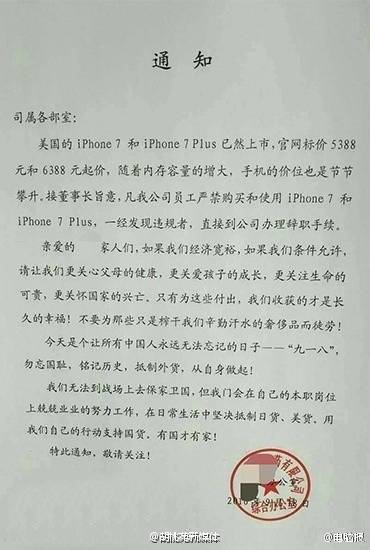 通知
司属各部室：
美国的 iPhone 7 和 iPhone 7 Plus 已然上市，官网标价 5388
元和 6388 元起价，随着内存容量的增大，手机的价位也是节节
攀升。接董事长旨意，凡我公司员工严禁购买和使用 iPhone 7 和
iPhone 7 Plus，一经发现违规者，直接到公司办理辞职手续。
亲爱的 家人们，如果我们经济宽裕，如果我们条件允许，
请让我们更关心父母的健康，更关爱孩子的成长，更关注生命的
可贵，更关怀国家的兴亡。只有为这些付出，我们收获的才是长
久的幸福！不要为那些只是榨干我们辛勤汗水的奢侈品而徒劳！
今天是个让所有中国人永远无法忘记的日子——“九一八”，
勿忘国耻，铭记历史，抵制外货，从自身做起！
我们无法到战场上去保家卫国，但我们会在自己的本职岗位
上兢兢业业的努力工作，在日常生活中坚决抵制日货、美货。用
我们自己的行动支持国货。有国才有家！
特此通知，敬请关注！
药有限公司
综合办公室
@电脑报